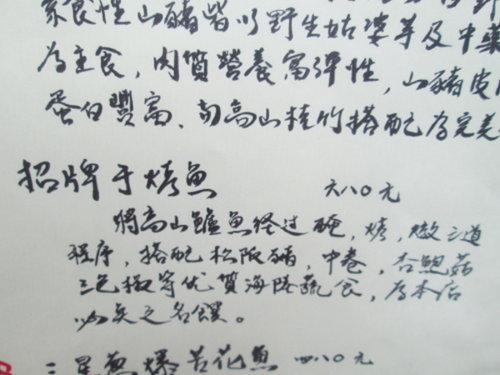 家食性山豬皆以野生姑婆芋及中藥
為主食，肉質營養富彈性，山豬皮
蛋白豐富、的高山桂竹搭配為完美
招牌于烤魚 六八〇元
將高山鱸魚經过醃，烤，燉三道
程序，搭配松阪豬，中卷，杏鮑菇
三色椒等优質海陸蔬食，為本店
必矣之名饌。
三星蔥爆苦花魚 四八〇元